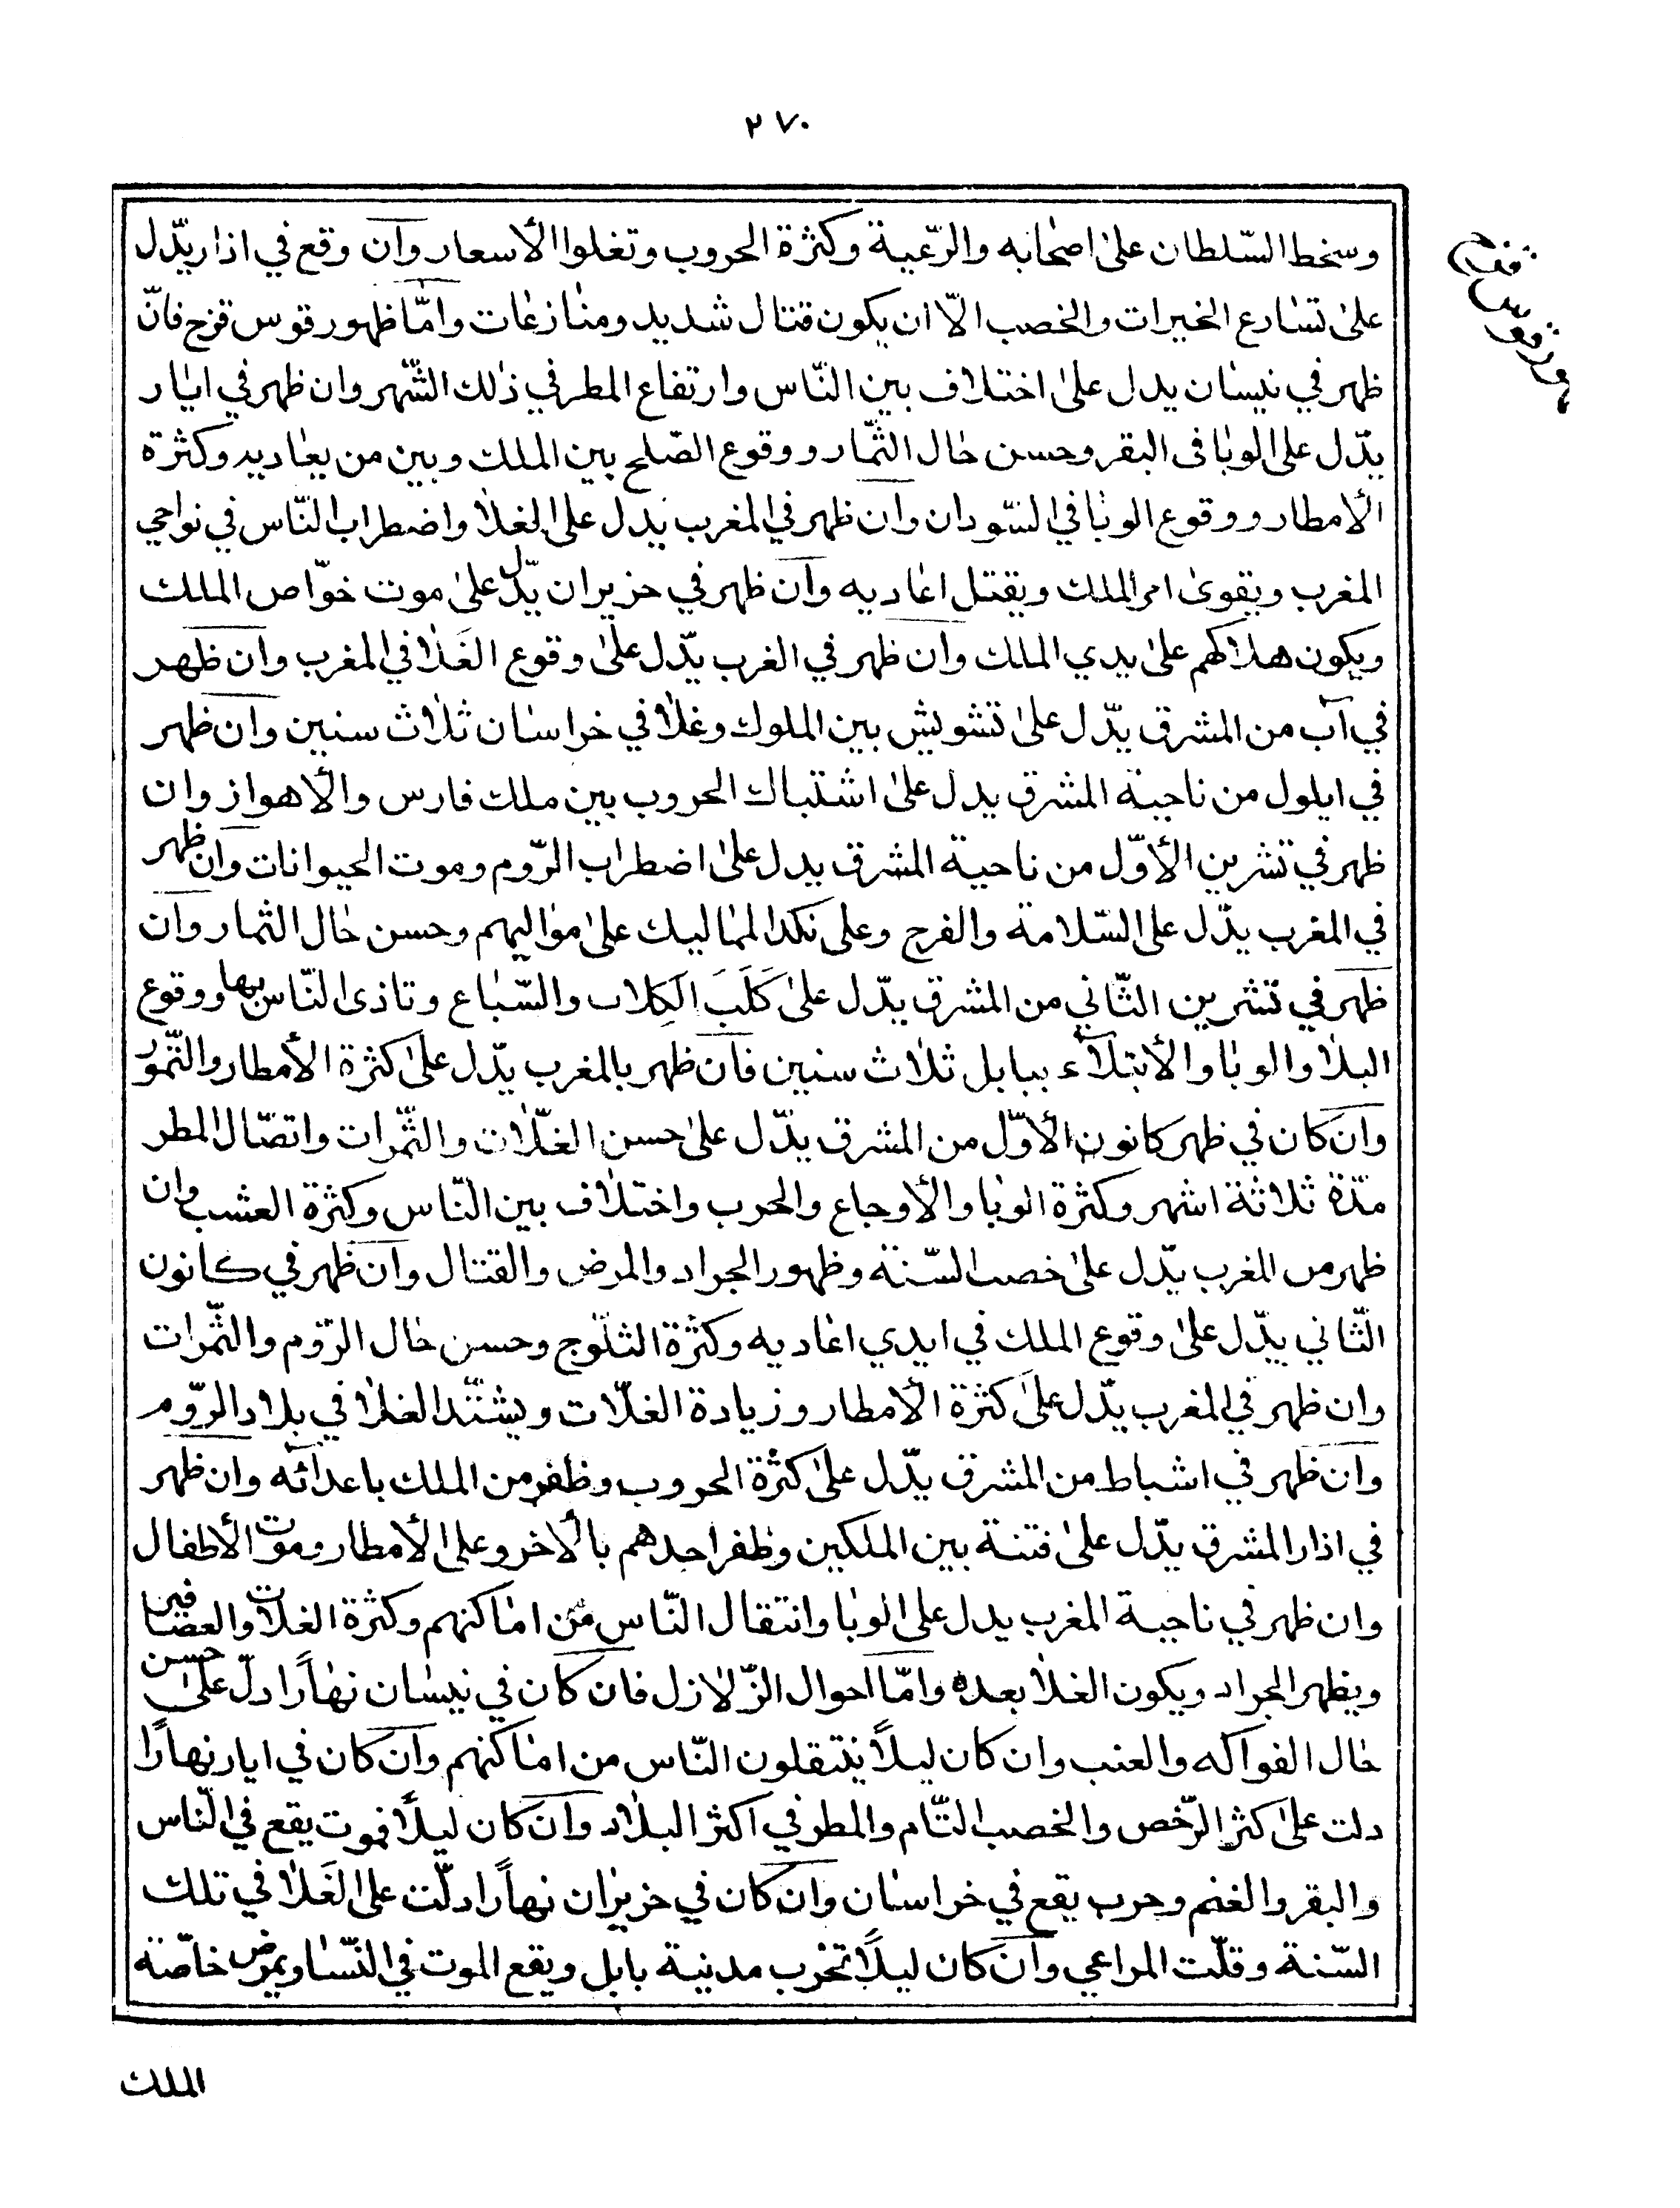 ٢٧٠
وسخط السّلطان على اصحابه والرّعية وكثرة الحروب وتغلوا الأسعار وان وقع في اذار يدّل
على تسارع الخيرات والخصب الّا ان يكون قتال شديد ومنازعات وامّا ظهور قوس قزح فانّ
ظهر في نيسان يدل على اختلاف بين النّاس وارتفاع المطر في ذلك الشّهر وان ظهر في ايار
يدّل على الوبا فى البقر وحسن حال الثّمار ووقوع الصّلح بين الملك وبين من يعاديه وكثرة
الأمطار ووقوع الوبا في السّودان وان ظهر في المغرب يدل على الغلا واضطراب النّاس في نواحي
المغرب ويقوى امر الملك ويقتل اعاديه وان ظهر في حزيران يدّل على موت خوّاص الملك
ويكون هلاكهم على يدي الملك وان ظهر في الغرب يدّل على وقوع الغَلا في المغرب وان ظهر
في آب من المشرق يدّل على تشويش بين الملوك وغلا في خراسان ثلاث سنين وان ظهر
في ايلول من ناحية المشرق يدل على اشتباك الحروب بين ملك فارس والأهواز وان
ظهر في تشرين الأوّل من ناحية المشرق يدل على اضطراب الرّوم وموت الحيوانات وان ظهر
في المغرب يدّل على السّلامة والفرج وعلى نكد المماليك على مواليهم وحسن حال الثمار وان
ظهر في تشرين الثّاني من المشرق يدّل على كَلَبَ الكِلاب والسّباع وتاذى النّاس بها ووقوع
البلا والوبا والأبتلآء ببابل ثلاث سنين فان ظهر بالمغرب يدّل على كثرة الأمطار والتّمور
وان كان في ظهر كانون الأوّل من المشرق يدّل على حسن الغلّات والثّمرات واتصّال المطر
مدّة ثلاثة اشهر وكثرة الوبا والأوجاع والحرب واختلاف بين النّاس وكثرة العشب وان
ظهر من المغرب يدّل على خصب السّنة وظهور الجراد والمرض والقتال وان ظهر في كانون
الثّاني يدّل على وقوع الملك في ايدي اعاديه وكثرة الثلوج وحسن حال الرّوم والثّمرات
وان ظهر في المغرب يدّل على كثرة الأمطار وزيادة الغلّات ويشتّد الغلا في بلاد الرّوم
وان ظهر في اشباط من المشرق يدّل على كثرة الحروب وظفر من الملك باعدآئه وان ظهر
في اذار المشرق يدّل على فتنة بين الملكين وظفر احدهم بالأخر وعلى الأمطار وموت الأطفال
وان ظهر في ناحية المغرب يدل على الوبا وانتقال النّاس من اماكنهم وكثرة الغلات والعصافير
ويظهر الجراد ويكون الغلا بعده وامّا احوال الزّلازل فان كان في نيسان نهاراً دلّ على حسن
حال الفواكه والعنب وان كان ليلاً ينتقلون النّاس من اماكنهم وان كان في ايار نهارًا
دلت على كثر الرّخص والخصب التّام والمطر في اكثر البلاد وان كان ليلاً فموت يقع في النّاس
والبقر والغنم وحرب يقع في خراسان وان كان في حزيران نهاراً دلّت على الغَلا في تلك
السّنة وقلّت المراعي وان كان ليلاً تخرب مدينة بابل ويقع الموت في النّسا ويمرض خاصّة
الملك